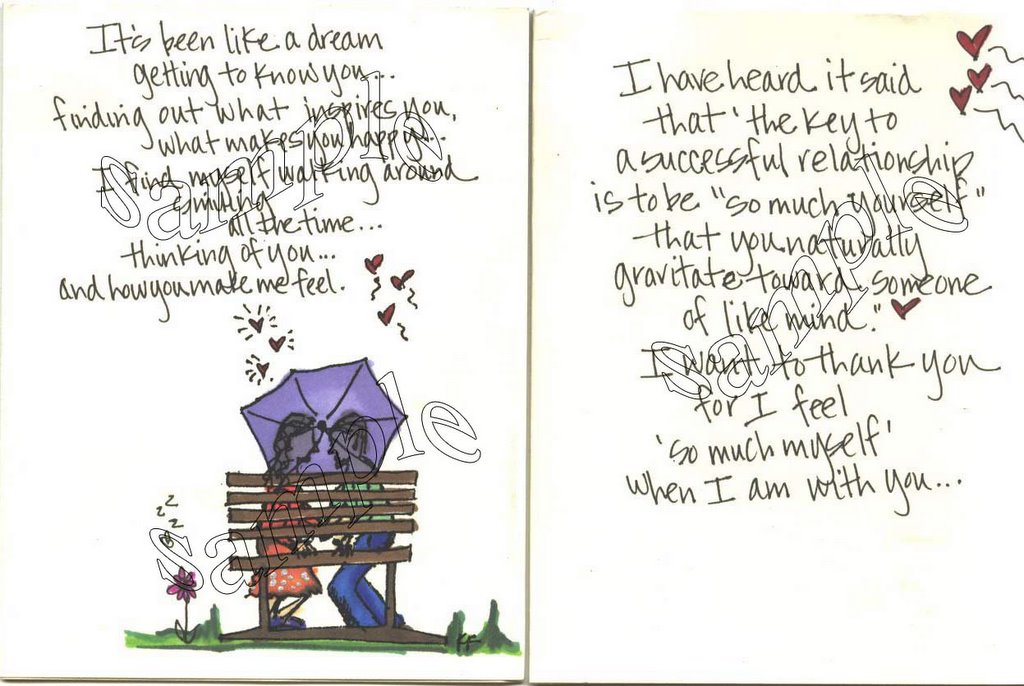 It's been like a dream
getting to know you...
finding out what inspires you,
what makes you happy...
I find myself walking around
smiling
all the time...
thinking of you...
and how you make me feel.
sample
sample
zzz
KF
I have heard it said
that 'the key to
a successful relationship
is to be "so much yourself"
that you naturally
gravitate toward someone
of like mind."
I want to thank you
for I feel
'so much myself'
when I am with you...
sample